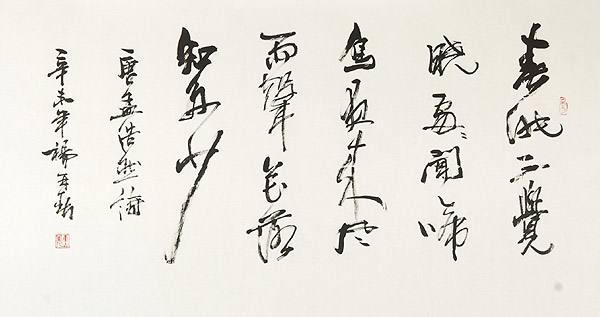 春眠不覺
曉處々聞啼
鳥夜來風
雨聲花落
知多少
唐孟浩然詩
辛未年楊再